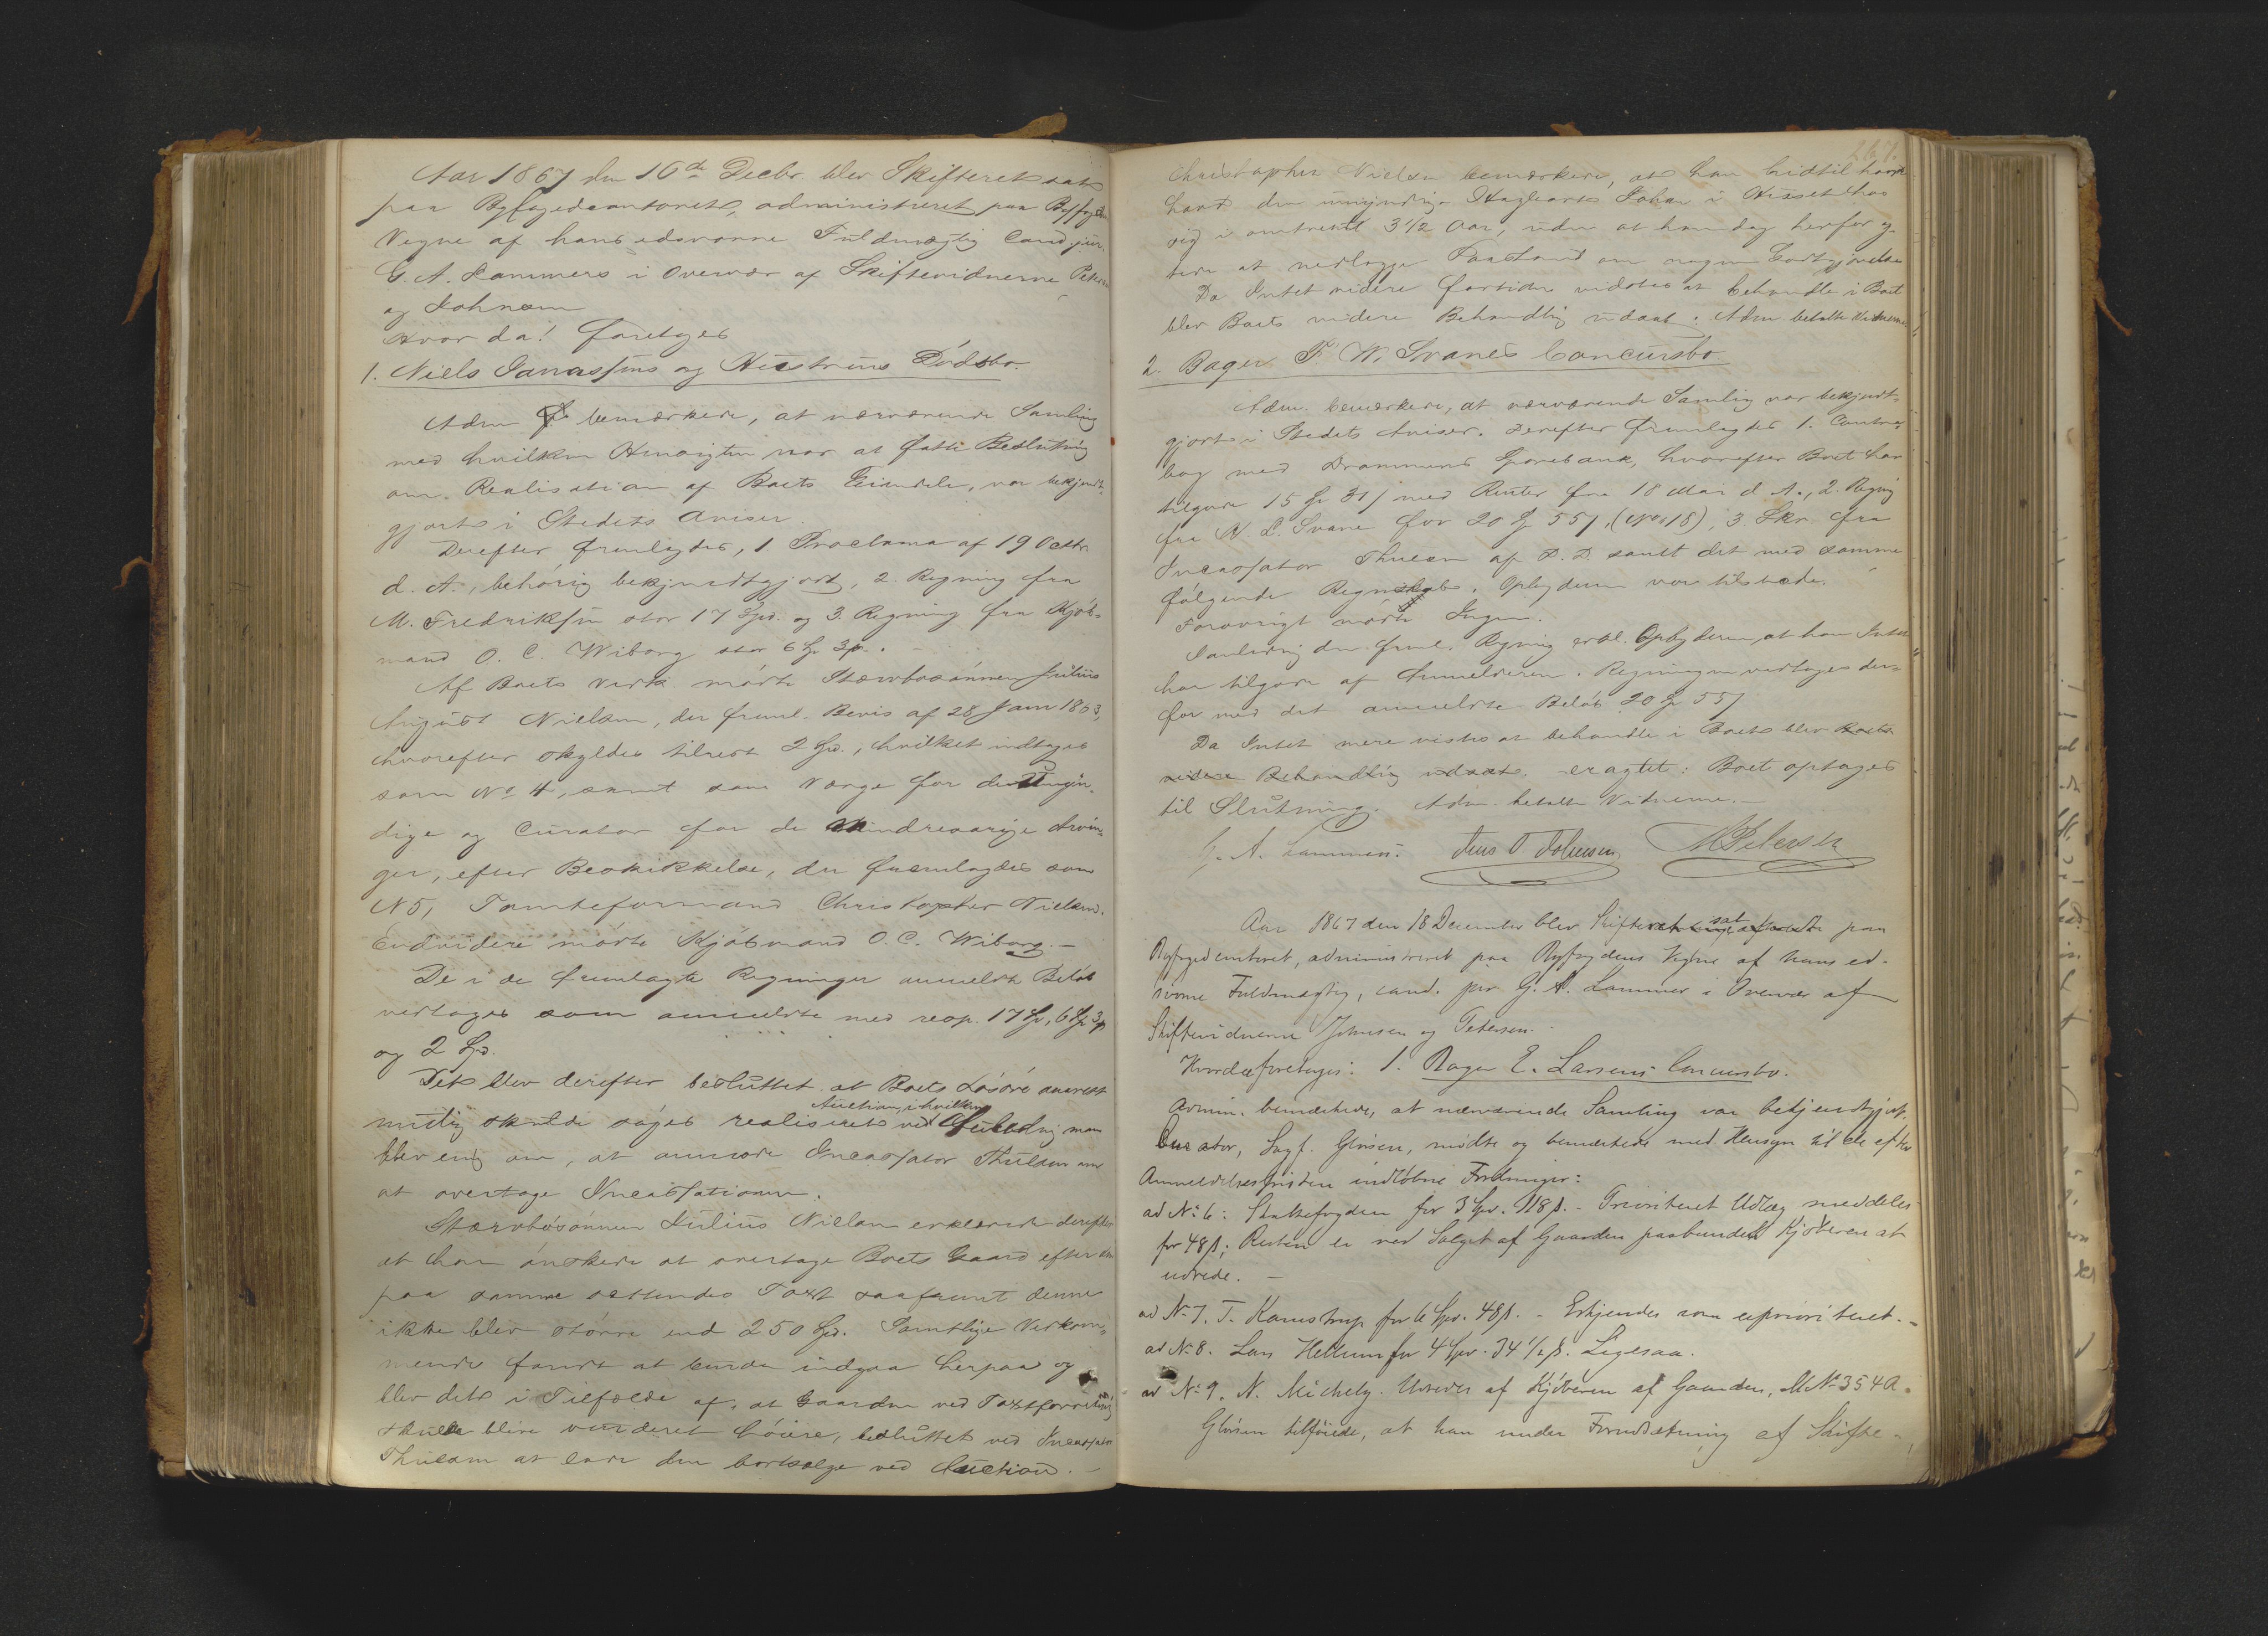 Aar 1867 den 16de Decbr blev Skifteret sat
paa Byfogedcontoret, administreret paa Byfogdens
Vegne af hans edsvorne Fuldmægtig Cand. jur.
G. A. Lammers i Overvær af Skiftevidnerne Petersen
og Johnsen
Hvor da! foretages
1. Niels Janassens og Hustrues Dødsbo.
Adm bemærkede, at nærværende Samling
med hvilken Hensigten var at fatte Beslutning
om Realisation af Boets Eiendele, var bekjendt-
gjort i Stedets Aviser
Derefter fremlagdes, 1 Proclama af 19 Octbr
d. A., behørig bekjendtgjort, 2. Regning fra
M. Fredriksen stor 17 Spd. og 3. Regning fra Kjøb-
mand O. C. Wiborg stor 6 Sp 3 β.
Af Boets Vedk. mødte Stervbosønnen Julius
August Nielsen, der freml. Bevis af 28 Jan 1863,
hvorefter skyldes tilrest 2 Spd., hvilket indtages
som No 4, samt som Værge for de Umyn-
dige og Curator for de Mindreaarige Arvin-
ger, efter Beskikkelse, der fremlagdes som
N 5, Tomteformand Christopher Nielsen.
Endvidere mødte Kjøbmand O. C. Wiborg.-
De i de fremlagte Regninger anmeldte Beløb
vedtages som anmeldte med resp. 17 Sp, 6 Sp 3 β
og 2 Spd.
Det blev derefter besluttet at Boets Løsøre snarest
mulig skulde søges realiseret ved Auction, i hvilken Anledning man
blev enig om, at anmode Incassator Thulsen om
at overtage Incassationen.
Stervbosønnen Julius Nielsen erklærede derefter
at han ønskede at overtage Boets Gaard efter den
paa samme settendes Taxt saafremt denne
ikke blev større end 250 Spd. Samtlige Vedkom-
mende fandt at kunde indgaa herpaa og
blev det i Tilfælde af, at Gaarden ved Taxtforretning
skulde blive vurderet høiere, besluttet ved Incassator
Thulsen at lade den bortsælge ved Auction.-
267.
Christopher Nielsen bemærkede, at han hidtil havde
havt den umyndige Johan i Huset hos
sig i omtrentl 3 1/2 Aar, uden at han dog herfor
at nedlægge Paastand om nogen Godtgjørelse
Da Intet videre fortiden vidstes at behandle i Boet
blev Boets videre Behandling udsat: Adm betalte Vidnerne
2. Bager F. W. Svanes Concursbo
Adm. bemærkede, at nærværende Samling var bekjendt-
gjort i Stedets Aviser. Derefter fremlagdes 1. Contra-
bog med Drammens Sparebank, hvorefter Boet har
tilgode 15 Sp 31 β med Renter fra 18 Mai d. A., 2. Regng
fra N. L. Svane for 20 Sp 55 β, (No 18), 3. Skr. fra
Incassator Thulsen af D. D. samt det med samme
følgende Regnskab. Opbyderen var tilstede.
Forøvrigt mødte Ingen.
I Anledning den freml. Regning erkl. Opbyderen, at han Intet
har tilgode af Anmelderen. Regningen vedtages der-
for med det anmeldte Beløb 20 Sp 55 β
Da Intet mere vistes at behandle i Boet blev Boets
videre Behandling udsat. eragtet: Boet optages
til Slutning. Adm. betalte Vidnerne.-
G. A. Lammers. Jens O Johnsen M Petersen
Aar 1867 den 18 December blev Skifteret sat paa
Byfogedcontoret, administreret paa Byfogdens Vegne af hans ed-
svorne Fuldmægtig, cand. jur G. A. Lammers i Overvær af
Skiftevidnerne Johnsen og Petersen.
Hvorda foretages: 1. Bager E. Larsens Concursbo.
Admin. bemærkede, at nærværende Samling var bekjendtgjort.
Curator, Sagf. Glørsen, mødte og bemærkede med Hensyn til de efter
Anmeldelsesfristen indløbne Fordringer:
ad No 6: Skattefogden for 3 Spd. 118 β. - Prioriteret Udlæg meddeles
for 48 β; Resten er ved Salget af Gaarden paabundet Kjøberen at
udrede. -
ad No 7. T. Kamstrup for 6 Spd. 48 β. - Erkjendes som uprioriteret.-
ad No 8. Lars Hellum for 4 Spd. 34 1/2 β. Ligesaa.
ad No 9. N. Michely. Udredes af Kjøberen af Gaarden, M No 354 A.
Glørsen tilføiede, at han under Forudsætning af Skifte-